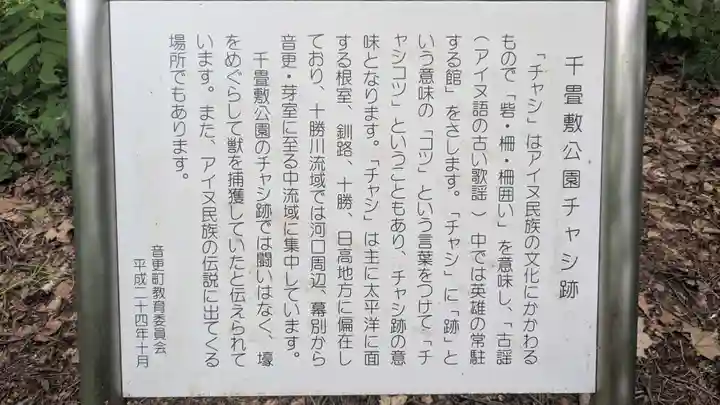 千畳敷公園チャシ跡
「チャシ」はアイヌ民族の文化にかかわる
もので「砦・柵・柵囲い」を意味し、「古謡
(アイヌ語の古い歌謡)中では英雄の常駐
する館」をさします。「チャシ」に「跡」と
いう意味の「コツ」という言葉をつけて「チ
ャシコツ」ということもあり、チャシ跡の意
味となります。「チャシ」は主に太平洋に面
する根室、釧路、十勝、日高地方に偏在し
ており、十勝川流域では河口周辺、幕別から
音更・芽室に至る中流域に集中しています。
千畳敷公園のチャシ跡では闘いはなく、壕
をめぐらして獣を捕獲していたと伝えられて
います。また、アイヌ民族の伝説に出てくる
場所でもあります。
音更町教育委員会
平成二十四年十月